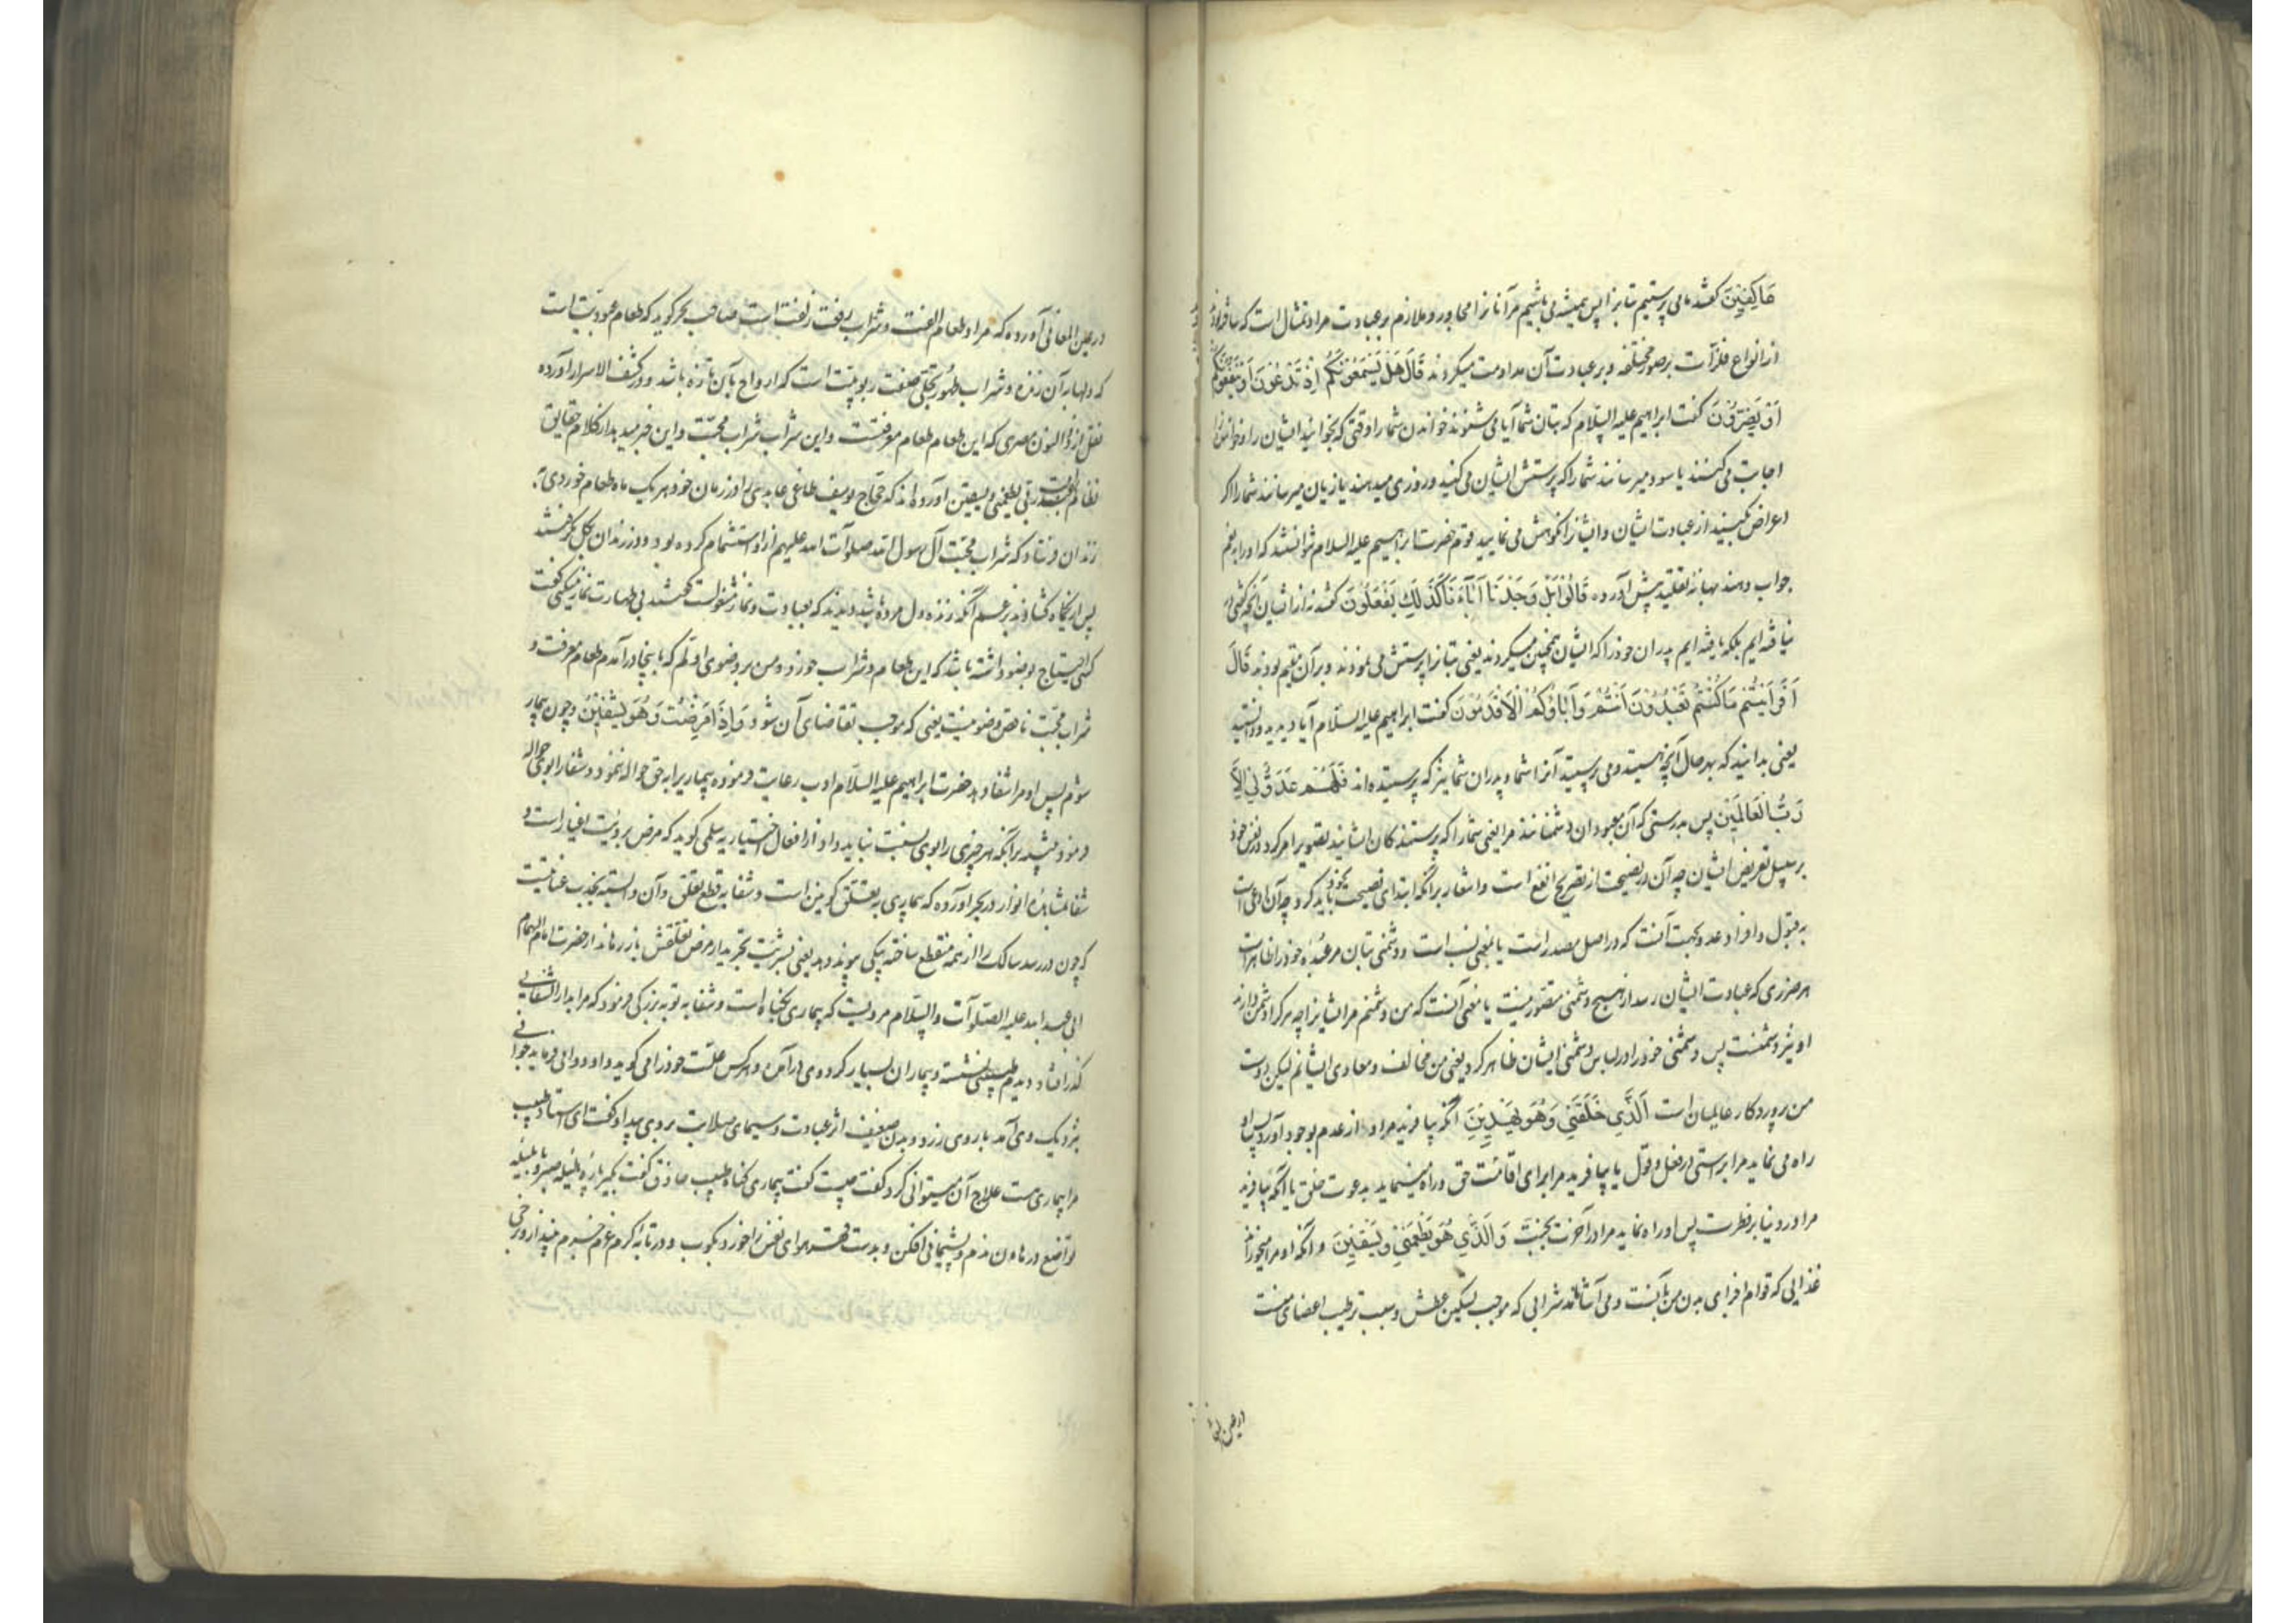 عَاكِفِينَ گفتند ما می پرستیم بتانرا پس همیشه می باشیم مرآنانرا مجاور و ملازم بر عبادت مراد تمثال است که ساخته اند
از انواع فلزات بر صور مختلفه و بر عبادت آن مداومت میکردند قَالَ هَلْ يَسْمَعُونَكُمْ إِذْ تَدْعُونَ أَوْ يَنْفَعُونَكُمْ
أَوْ يَضُرُّونَ گفت ابراهیم علیه السّلام که بتان شما آیا می شنوند خواندن شما را وقتی که بخوانید ایشان را و خواندن را
اجابت می کنند یا سود میرسانند شما را که پرستش ایشان می کنید و روزی میدهند یا زیان میرسانند شما را اگر
اعراض کنید از عبادت ایشان و ایشانرا نکوهش می نمایید قوم حضرت ابراهیم علیه السلام نتوانستند که او را به نعم
جواب دهند بهانهٔ تقلید پیش آوردند قَالُوا بَلْ وَجَدْنَا آبَاءَنَا كَذَلِكَ يَفْعَلُونَ گفتند نه از ایشان آنچه گفتی
نیافته ایم بلکه یافته ایم پدران خود را که ایشان همچنین میکردند یعنی بتانرا پرستش می نمودند و بر آن مقیم بودند قَالَ
أَفَرَأَيْتُمْ مَا كُنْتُمْ تَعْبُدُونَ أَنْتُمْ وَآبَاؤُكُمُ الْأَقْدَمُونَ گفت ابراهیم علیه السلام آیا دیدید و دانستید
یعنی بدانید که بهر حال آنچه هستید و می پرستید آنرا شما و پدران شما نیز که پرستیده اند فَإِنَّهُمْ عَدُوٌّ لِي إِلَّا
رَبَّ الْعَالَمِينَ پس بدرستی که آن معبودان دشمنانند مرا یعنی شما را که پرستندگان ایشانید تصویر امر کرد در نفس خود
بر سبیل تعریض ایشان چه آن در نصیحت از تصریح انفع است و اشعار بر آنکه ابتدای نصیحت بخود باید کرد چه آن ادعی است
به قبول و افراد عدو بجهت آنست که در اصل مصدر است یا بمعنی نسب است و دشمنی بتان مر عبدهٔ خود را ظاهر است
هر ضرری که بعبادت ایشان رسد از هیچ دشمنی متصور نیست یا معنی آنست که من دشمنم مر ایشانرا چه هر کرا دشمن دارند
او نیز دشمنست پس دشمنی خود را در لباس دشمنی ایشان ظاهر کرد یعنی من مخالف و معادی ایشانم لیکن دوست
من پروردگار عالمیان است الَّذِي خَلَقَنِي فَهُوَ يَهْدِينِ آنکه بیافرید مرا و از عدم بوجود آورد پس او
راه می نماید مرا براستی در فعل و قول یا بیافرید مرا برای اقامت حق و راه مینماید بدعوت خلق یا آنکه بیافرید
مرا در دنیا بر فطرت پس او راه نماید مرا در آخرت بجنت وَالَّذِي هُوَ يُطْعِمُنِي وَيَسْقِينِ و آنکه او مرا میخوراند
غذایی که قوام اجزای بدن من بآنست و می آشاماند شرابی که موجب تسکین عطش و سبب ترطیب اعضای منست
در عین المعانی آورده که مراد طعام الفت و شراب رفعت زلفت است صاحب بحر گوید که طعام عبودیّت است
که دلها بآن زنده و شراب طهور تجلّی صفت ربوبیّت است که ارواح بآن تازه باشد و در کشف الاسرار آورده
نقل از ذوالنون مصری که این طعام طعام معرفتست و این شراب شراب محبّت و این خبر میدهد از کلام حقایق
نظام ربی یطعمنی و یسقین آورده اند که حجاج یوسف طاغی عابدی را در زمان خود هر یک ماه طعام خوردی به
زندان فرستاد که شراب محبّت آل رسول الله صلوات الله علیهم از او استشمام کرده بود و در زندان بگل گرفتند
پس از یکماه گشادند بزعم آنکه زنده دل مرده باشد دیدند که بعبادت و نماز مشغولست گفتند بی طهارت نماز میکنی گفت
کسی احتیاج بوضو داشته باشد که این طعام و شراب خورد و من بر وضوی اولم که باینجا درآمدم طعام معرفت و
شراب محبّت ناقض وضو نیست یعنی که موجب تقاضای آن شود وَإِذَا مَرِضْتُ فَهُوَ يَشْفِينِ و چون بیمار
شوم پس او مرا شفا دهد حضرت ابراهیم علیه السّلام ادب رعایت فرموده بیماری را به حق حواله ننمود و شفا را بوی حواله
فرمود بر آنکه هر چیزی را بوی نسبت نباید داد از افعال اختیاریه سلمی گوید که مرض برویت اغیار است و
شفا بمشاهدهٔ انوار در بحر آورده که بیماری به تعلّق کونین است و شفا به قطع تعلّق و آن وابسته بجذب عنایتست
که چون در رسد سالک را از همه منقطع ساخته بیکی پیوند دهد یعنی بشربت تجرید از مرض تعلقش باز رهاند از حضرت امام الهمام
ابی عبدالله علیه الصّلوات والسّلام مرویست که بیماری بگناه است و شفا به توبه بزرگی فرمود که مرا بدار الشفایی
گذر افتاد دیدم طبیبی نشسته و بیماران بسیار گرد وی درآمده و هر کس علّت خود را می گوید و او دوایی میفرماید جوانی
نزدیک وی آمد با روی زرد و بدن ضعیف اثر عبادت و سیمای صلابت بر وی پیدا و گفت ای استاد طبیب
مرا بیماری هست علاج آن میتوانی کرد گفت چیست گفت بیماری گناه طبیب حاذق گفت بگیر
تواضع در هاون ندم و پشیمانی افکن و بدست قهر هوای نفس را خورد بکوب و در تابهٔ
در عین المعانی